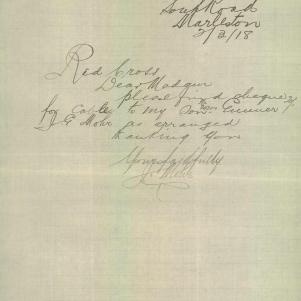 South Road
Marleston
7/2/18
Red Cross
Dear Madam
please find cheque
for Cable to my Son Gunner
J G Mohr as arranged
thanking you
Yours faithfully
J Mohr